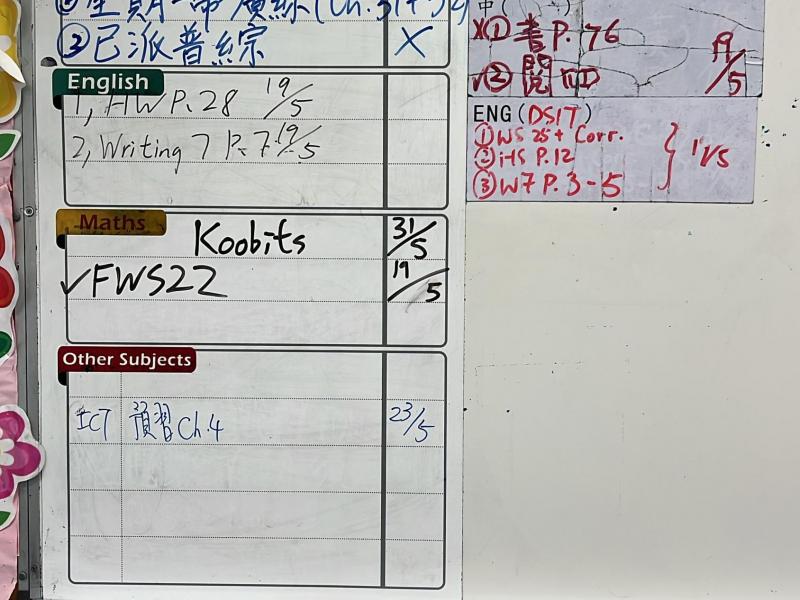 (Ch. 31+32)
③已派普綜 X
English
1, HW P.28 19/5
2, Writing 7 P.7 19/5
Maths
Koobits 31/5
✓FWS22 19/5
Other Subjects
ICT 預習Ch.4 23/5
中(
X① 書 P.76
✓② 閱 19/5
ENG(DSIT)
① WS 25+ Corr.
② P.12
③ W7 P.3-5
} 1/5